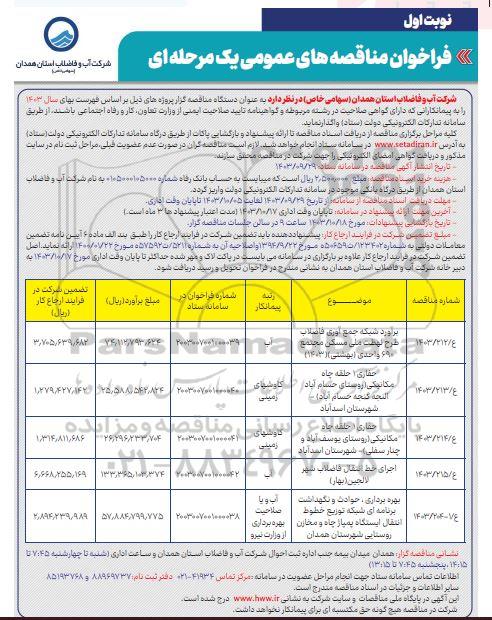 نوبت اول
فراخوان مناقصه های عمومی یک مرحله ای
شرکت آب و فاضلاب استان همدان
(سهامی خاص)
شرکت آب و فاضلاب استان همدان (سهامی خاص) در نظر دارد به عنوان دستگاه مناقصه گزار پروژه های ذیل بر اساس فهرست بهای سال ۱۴۰۳
را به پیمانکارانی که دارای گواهی صلاحیت در رشته مربوطه و گواهینامه تایید صلاحیت ایمنی از وزارت تعاون، کار و رفاه اجتماعی باشند، از طریق
سامانه تدارکات الکترونیکی دولت (ستاد) واگذار نماید.
کلیه مراحل برگزاری مناقصه از دریافت اسناد مناقصه تا ارائه پیشنهاد و بازگشایی پاکات از طریق درگاه سامانه تدارکات الکترونیکی دولت (ستاد)
به آدرس www.setadiran.ir در سامانه ستاد انجام خواهد شد. لازم است مناقصه گران در صورت عدم عضویت قبلی، مراحل ثبت نام در سایت
مذکور و دریافت گواهی امضای الکترونیکی را جهت شرکت در مناقصه محقق سازند.
- تاریخ انتشار آگهی مناقصه در سامانه ستاد: ۱۴۰۳/۰۹/۲۹
- هزینه خرید اسناد مناقصه: مبلغ ۲,۵۰۰,۰۰۰ ریال است که میبایست به حساب بانک رفاه شماره به نام شرکت آب و فاضلاب
استان همدان از طریق درگاه بانکی موجود در سامانه تدارکات الکترونیکی دولت واریز گردد.
- مهلت دریافت اسناد مناقصه از سامانه: از تاریخ ۱۴۰۳/۰۹/۲۹ لغایت ۱۴۰۳/۱۰/۰۵ تا پایان وقت اداری.
- آخرین مهلت ارائه پیشنهاد در سامانه: تا پایان وقت اداری ۱۴۰۳/۱۰/۱۷ (مدت اعتبار پیشنهاد ها ۳ ماه است.)
- تاریخ بازگشایی پیشنهادات: مورخ ۱۴۰۳/۱۰/۱۸ ساعت ۹ در سالن جلسات مناقصه گزار.
- مبلغ تضمین شرکت در فرایند ارجاع کار: پیشنهاد دهنده باید تضمین شرکت در فرایند ارجاع کار را طبق بند الف ماده ۶ آیین نامه تضمین
معاملات دولتی به شماره ۱۲۳۴۰۲/ت۵۰۶۵۹ه مورخ ۱۳۹۴/۹/۲۲ و اصلاحیه آن به شماره ۵۲۱۱/ت۵۷۵۹۲ه مورخ ۱۴۰۰/۰۱/۲۲ ارائه نماید. اصل
تضمین شرکت در فرایند ارجاع کار علاوه بر بارگذاری در سامانه می بایست در پاکت لاک و مهر شده حداکثر تا پایان وقت اداری مورخ ۱۴۰۳/۱۰/۱۷ به
دبیر خانه شرکت آب و فاضلاب استان همدان به نشانی مندرج در فراخوان تحویل و رسید دریافت شود.
شماره مناقصه | موضوع | رتبه پیمانکار | شماره فراخوان در سامانه ستاد | مبلغ برآورد (ریال) | تضمین شرکت در فرایند ارجاع کار (ریال)
ع/۱۴۰۳/۲۱۲ | برآورد شبکه جمع آوری فاضلاب طرح نهضت ملی مسکن مجتمع ۶۹۰ واحدی (بهشتی) (۱۴۰۳) | آب | ۲۰۰۳۰۰۷۰۰۱۰۰۰۰۳۹ | ۷۴,۱۱۲,۷۹۳,۶۲۴ | ۳,۷۰۵,۶۳۹,۶۸۲
ع/۱۴۰۳/۲۱۳ | حفاری ۱ حلقه چاه مکانیکی (روستای حسام آباد - شهرستان اسدآباد | کاوشهای زمینی | ۲۰۰۳۰۰۷۰۰۱۰۰۰۰۴۰ | ۲۵,۵۸۸,۵۴۲,۸۲۴ | ۱,۲۷۹,۴۲۷,۱۴۲
ع/۱۴۰۳/۲۱۴ | حفاری ۱ حلقه چاه مکانیکی (روستای یوسف آباد و چنار سفلی) - شهرستان اسدآباد | کاوشهای زمینی | ۲۰۰۳۰۰۷۰۰۱۰۰۰۰۴۱ | ۲۶,۲۹۶,۲۳۳,۷۰۴ | ۱,۳۱۴,۸۱۱,۶۸۶
ع/۱۴۰۳/۲۱۵ | اجرای خط انتقال فاضلاب شهر لالجین (بهار) | آب | ۲۰۰۳۰۰۷۰۰۱۰۰۰۰۴۲ | ۱۳۳,۳۶۵,۱۰۳,۳۷۴ | ۶,۶۶۸,۲۵۵,۱۶۹
ع/۱-۱۴۰۳/۲۰۴ | بهره برداری، حوادث و نگهداشت برنامه ای شبکه توزیع خطوط انتقال ایستگاه پمپاژ چاه و مخازن روستایی شهرستان همدان | آب و یا صلاحیت بهره برداری از وزارت نیرو | ۲۰۰۳۰۰۷۰۰۱۰۰۰۰۳۸ | ۵۷,۸۸۴,۷۹۹,۷۷۵ | ۲,۸۹۴,۲۳۹,۹۸۹
نشانی مناقصه گزار: همدان میدان بیمه جنب اداره ثبت احوال شرکت آب و فاضلاب استان همدان و ساعت اداری (شنبه تا چهارشنبه ۷:۴۵ تا
۱۴:۱۵، پنجشنبه ۷:۴۵ تا ۱۳:۱۵)
اطلاعات تماس سامانه ستاد جهت انجام مراحل عضویت در سامانه: مرکز تماس ۴۱۹۳۴-۰۲۱ دفتر ثبت نام: ۸۸۹۶۹۷۳۷ و ۸۵۱۹۳۷۶۸
سایر اطلاعات و جزئیات در اسناد مناقصه مندرج است.
این آگهی در پایگاه ملی مناقصات و سایت شرکت به نشانی www.hww.ir درج شده است.
شرکت در مناقصه هیچ گونه حق مکتسبه ای برای پیمانکار نخواهد داشت.